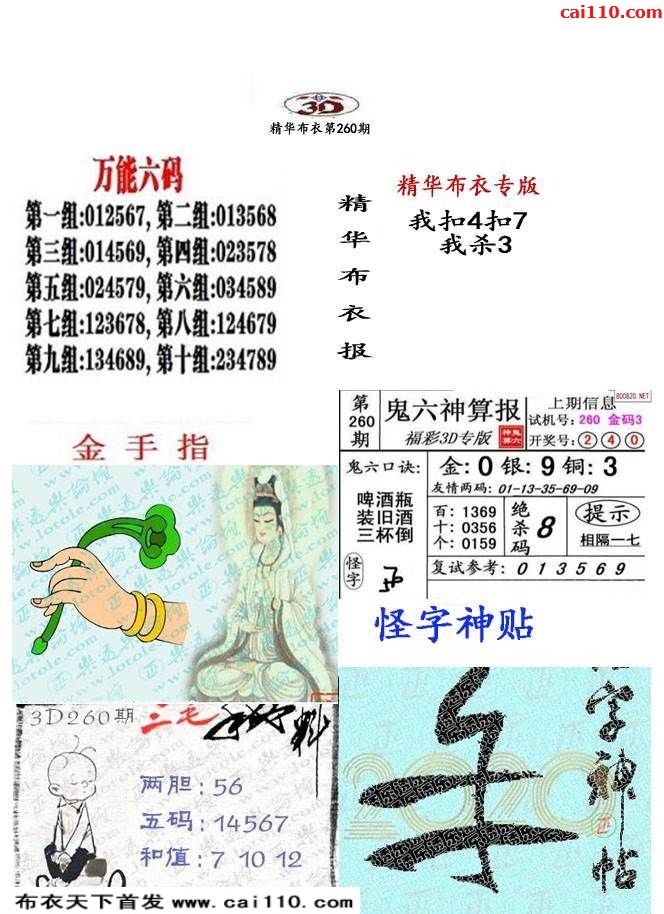 cai110.com
3D
精华布衣第260期
万能六码
第一组:012567, 第二组:013568
第三组:014569, 第四组:023578
第五组:024579, 第六组:034589
第七组:123678, 第八组:124679
第九组:134689, 第十组:234789
精华布衣报
精华布衣专版
我扣4扣7
我杀3
金手指
第260期
鬼六神算报
福彩3D专版
上期信息
800820.NET
试机号: 260 金码3
开奖号: 2 4 0
鬼六口诀:
啤酒瓶
装旧酒
三杯倒
金: 0 银: 9 铜: 3
友情两码: 01-13-35-69-09
百: 1369
十: 0356
个: 0159
绝杀码
8
提示
相隔一七
怪字
复试参考: 013569
怪字神贴
3D260期
三毛
两胆: 56
五码: 14567
和值: 7 10 12
字神帖
布衣天下首发 www.cai110.com